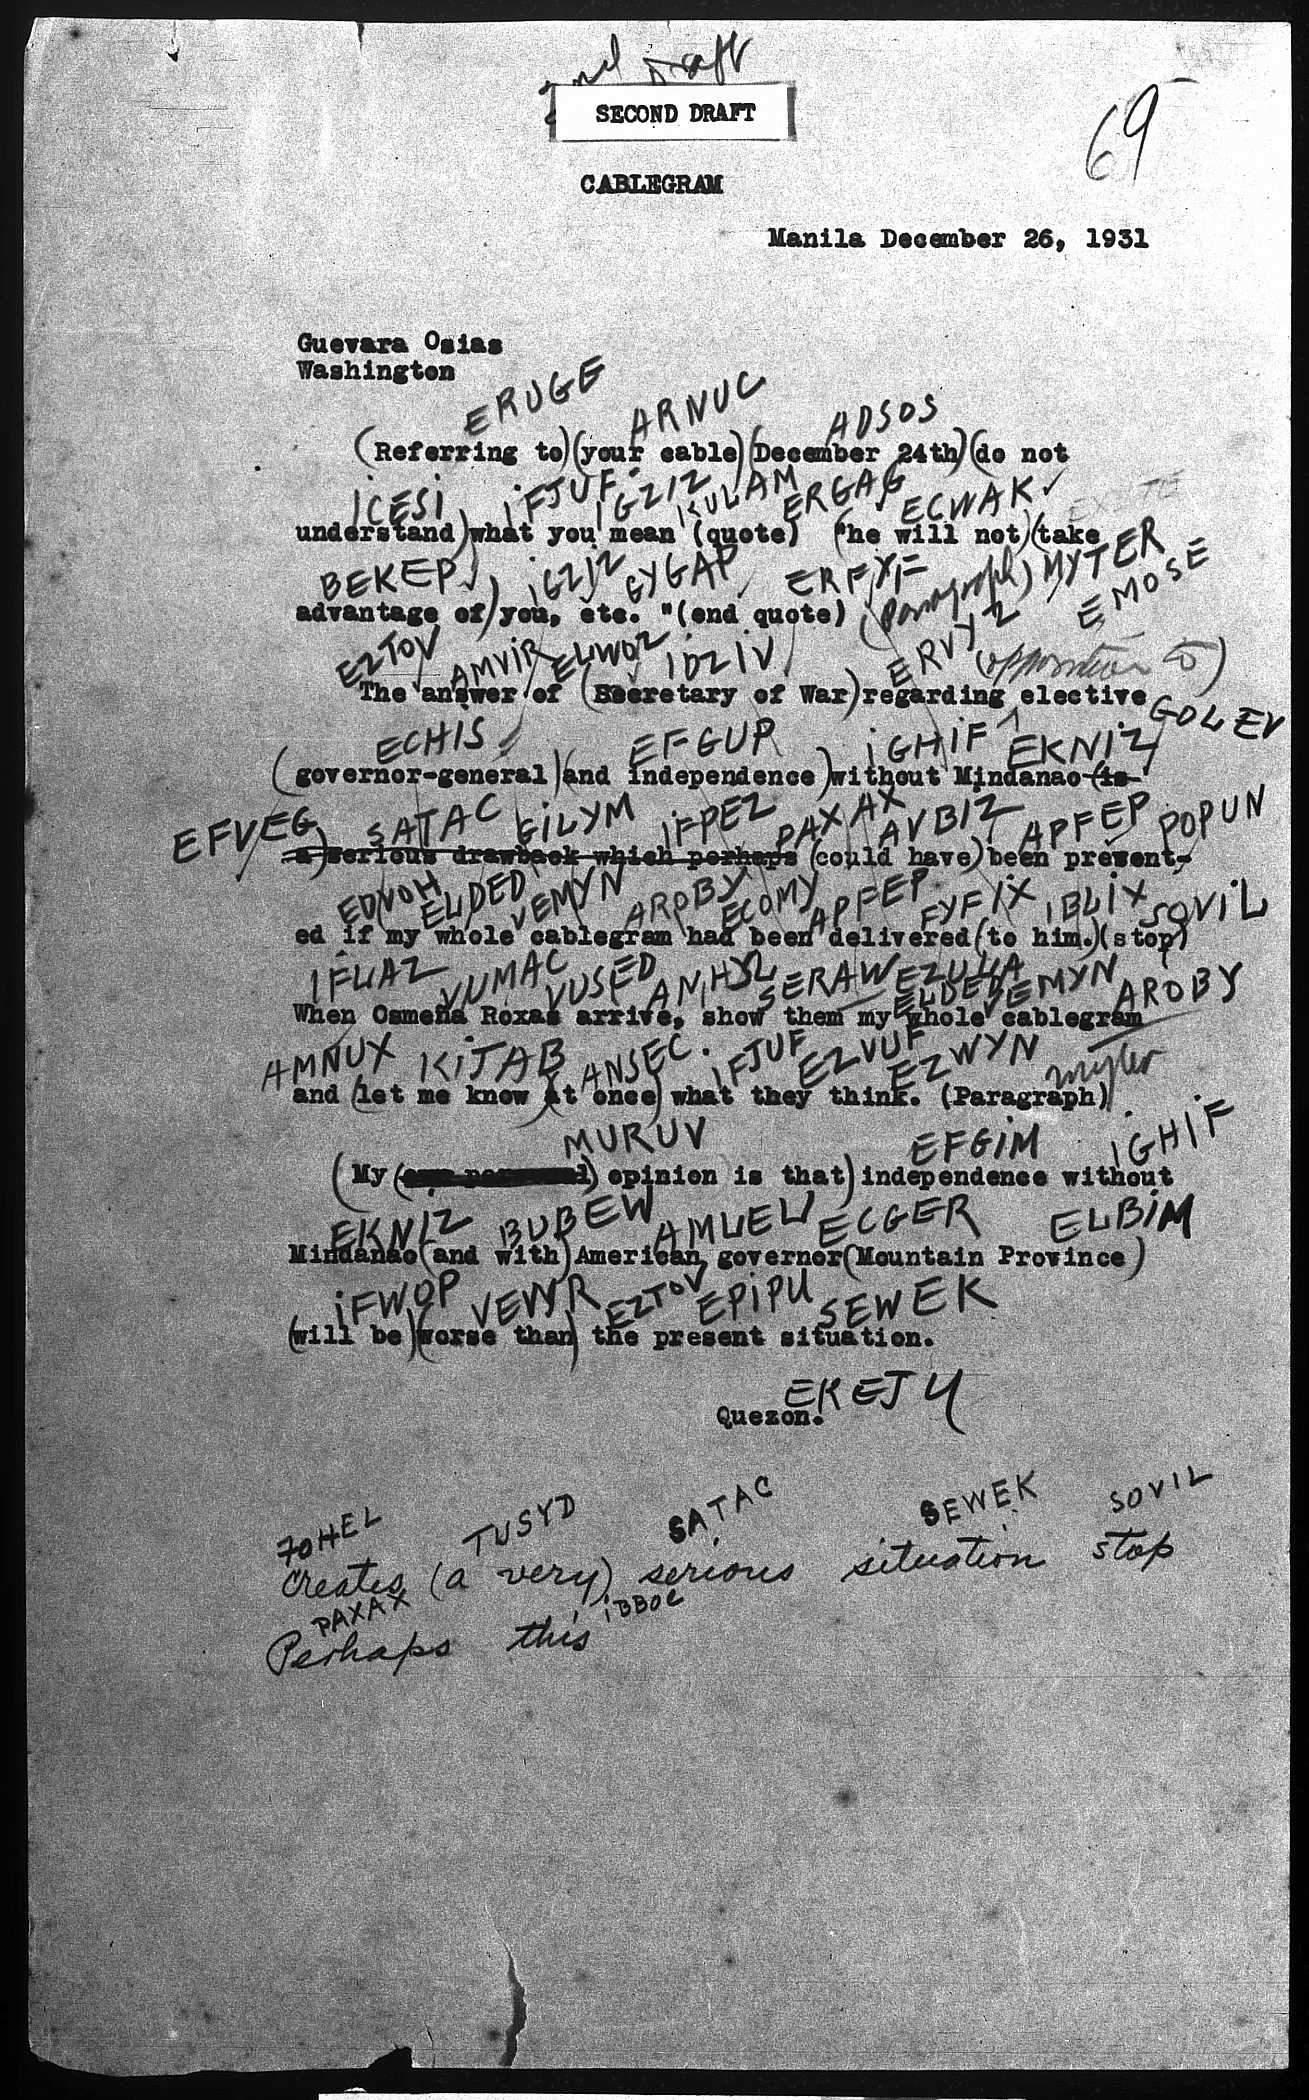 2nd Draft
SECOND DRAFT
69
CABLEGRAM
Manila December 26, 1931
Guevara Osias
Washington
ERUGE ARNUC ADSOS
(Referring to)(your cable)(December 24th)(do not
ICESI IFJUF IGZIZ KULAM ERGAG ECWAK
understand)what you mean (quote) "he will not)(take
BEKEP IGZIZ GYGAP ERFYF (Paragraph) MYTER
advantage of)you, etc. "(end quote)
EZTOV AMVIR ELWOZ IDZIV ERVYZ (opposition to) EMOSE
The answer of (Secretary of War)regarding elective
ECHIS EFGUP IGHIF EKNIZ GOLEV
(governor-general)(and independence)without Mindanao (is
EFVEG SATAC GILYM IFPEZ PAXAX AVBIZ APFEP POPUN
a)serious drawback which perhaps (could have)been present-
EDNOH ELDED VEMYN AROBY ECOMY APFEP FYFIX IBLIX SOVIL
ed if my whole cablegram had been delivered(to him.)(stop)
IFLAZ VUMAC VUSED ANHYL SERAW EZULA ELDED VEMYN AROBY
When Osmeña Roxas arrive, show them my whole cablegram
AMNUX KITAB ANSEC IFJUF EZVUF EZWYN myter
and (let me know)(at once) what they think. (Paragraph)
MURUV EFGIM IGHIF
(My opinion is that) independence without
EKNIZ BUBEW AMUEU ECGER ELBIM
Mindanao(and with)American governor(Mountain Province)
IFWOP VEWYR EZTOV EPIPU SEWEK
(will be)(worse than) the present situation.
EKEJY
Quezon.
FOHEL TUSYD SATAC SEWEK SOVIL
Creates (a very) serious situation stop
PAXAX IBBOC
Perhaps this